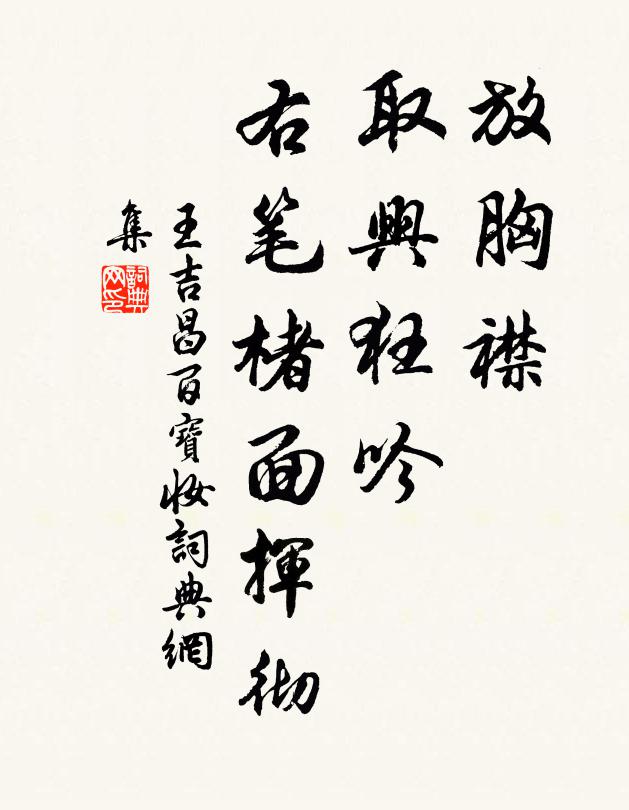 放胸襟
取興狂吟
右笔楮面揮彻
王吉昌百寶妝詞典網
集
詞典網印